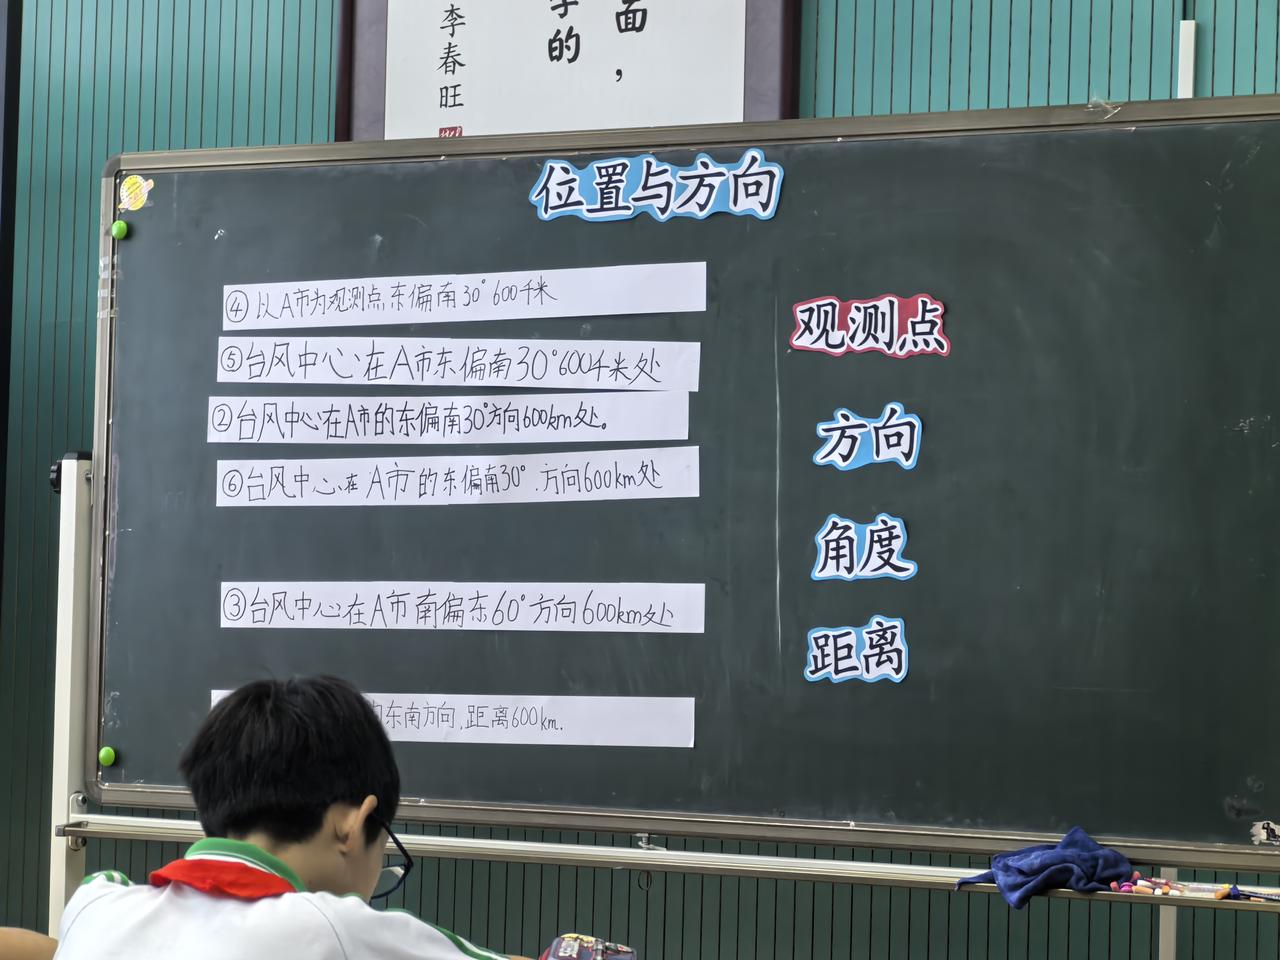 李春旺
的
面，
位置与方向
④以A市为观测点东偏南30°600千米
⑤台风中心在A市东偏南30°600千米处
②台风中心在A市的东偏南30°方向600km处。
⑥台风中心在A市的东偏南30°.方向600km处
③台风中心在A市南偏东60°方向600km处
东南方向,距离600km.
观测点
方向
角度
距离